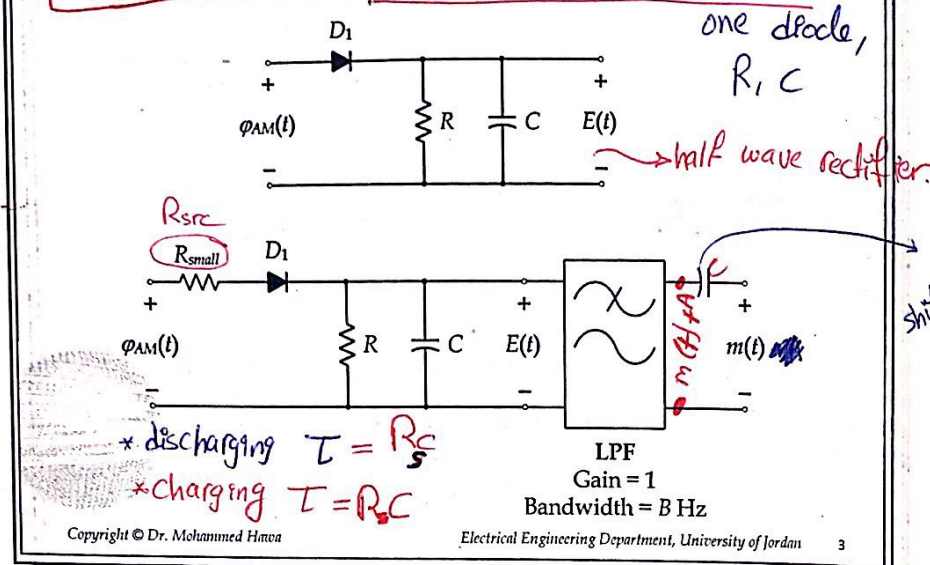 one diode,
R, C
D1
+ +
φAM(t) R C E(t)
− −
half wave rectifier.
Rsrc
Rsmall D1
C
+ + +
φAM(t) R C E(t) m(t)+A m(t)
− − −
* discharging τ = RsC
* charging τ = R.C
LPF
Gain = 1
Bandwidth = B Hz
Copyright © Dr. Mohammed Hawa Electrical Engineering Department, University of Jordan 3